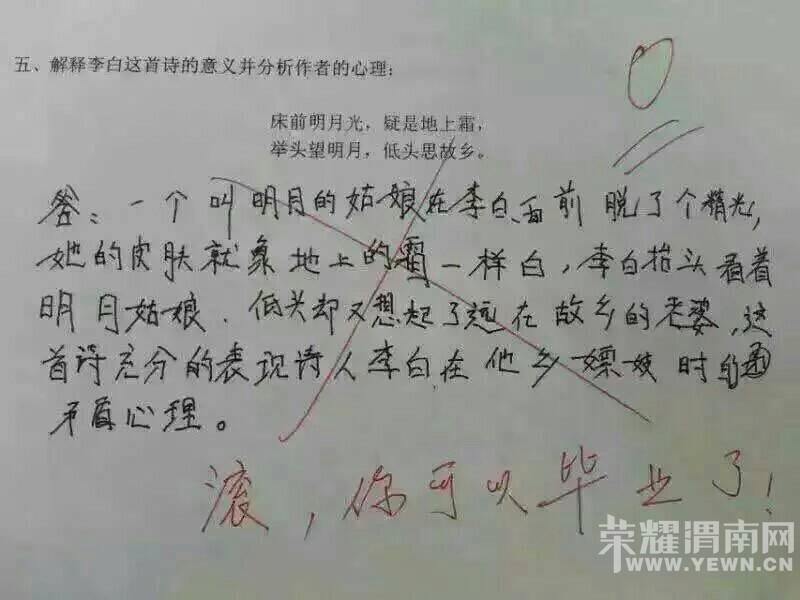 五、解释李白这首诗的意义并分析作者的心理：
0
床前明月光，疑是地上霜，
举头望明月，低头思故乡。
答：一个叫明月的姑娘在李白面前脱了个精光，
她的皮肤就象地上的霜一样白，李白抬头看着
明月姑娘．低头却又想起了远在故乡的老婆，这
首诗充分的表现诗人李白在他乡嫖妓时的
矛盾心理。
滚，你可以毕业了！
荣耀渭南网
WWW.YEWN.CN